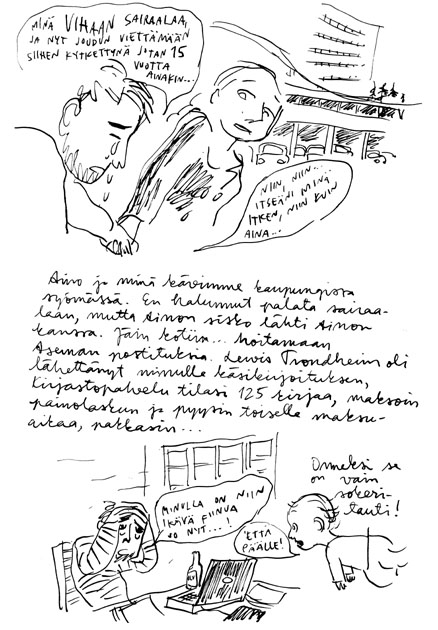 MINÄ VIHAAN SAIRAALAA,
JA NYT JOUDUN VIETTÄMÄÄN
SIIHEN KYTKETTYNÄ JOTAN 15
VUOTTA
AINAKIN...
NIIN, NIIN...
ITSEÄNI MINÄ
ITKEN, NIIN KUIN
AINA...
Aino ja minä kävimme kaupungissa
syömässä. En halunnut palata sairaa-
laan, mutta Ainon sisko lähti Ainon
kanssa. Jäin kotiin... hoitamaan
Aseman postituksia. Lewis Trondheim oli
lähettänyt minulle käsikirjoituksen,
Kirjastopalvelu tilasi 125 kirjaa, maksoin
painolaskun ja pyysin toiselle maksu-
aikaa, pakkasin...
MINULLA ON NIIN
IKÄVÄ
JO NYT...!
'ETTÄ
PÄÄLLE!
Onneksi se
on vain
sokeri-
tauti!